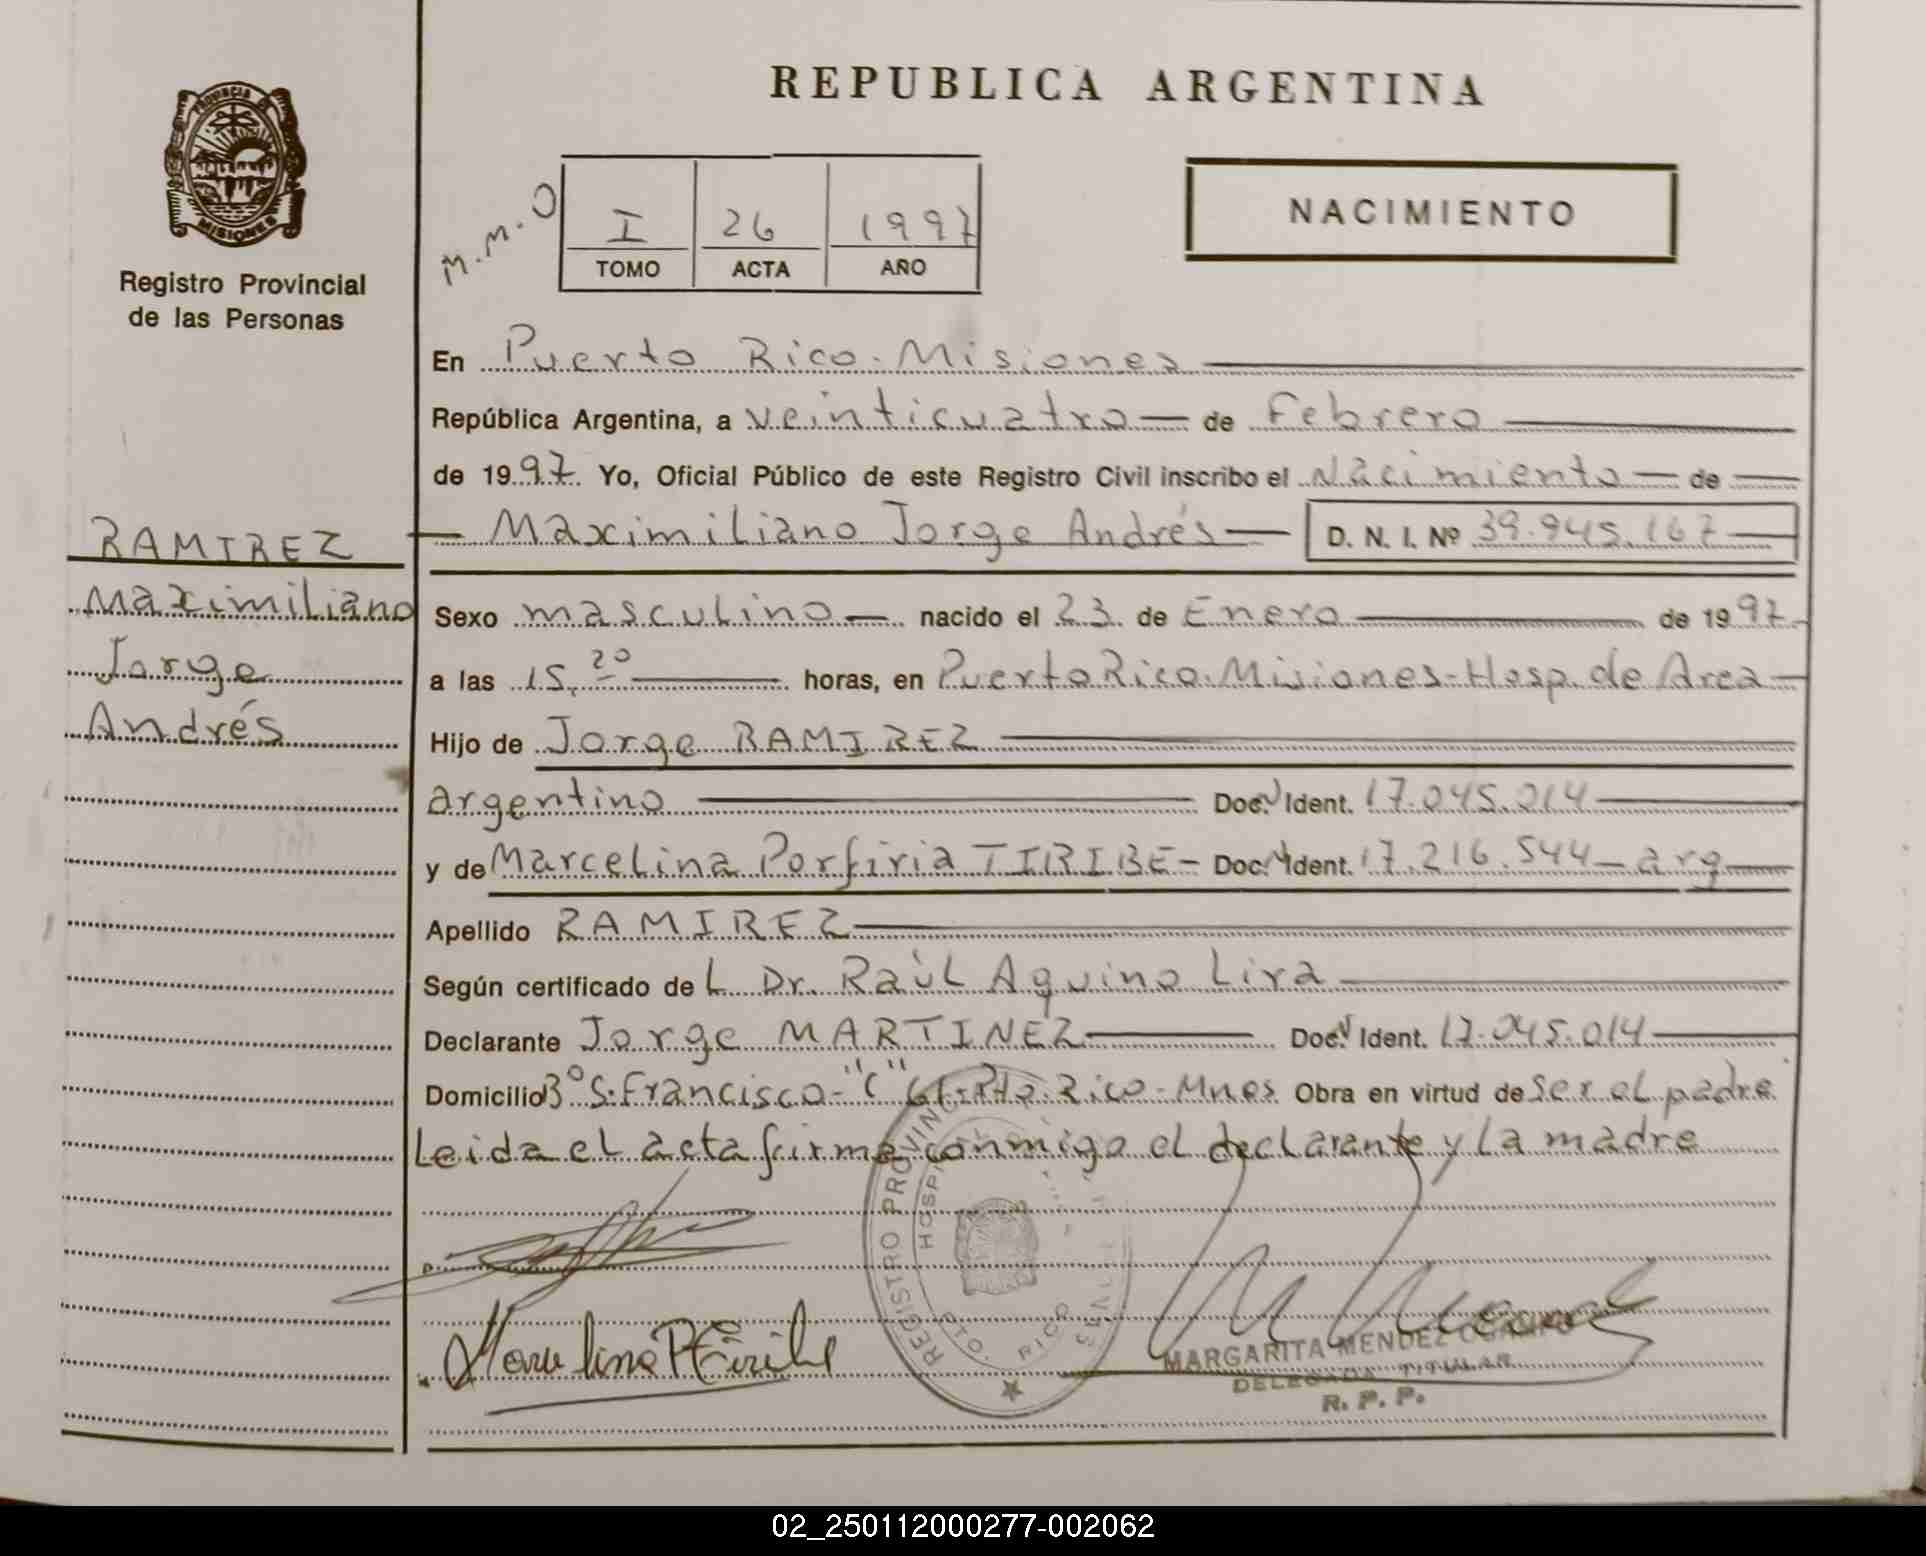 PROVINCIA DE
MISIONES
Registro Provincial
de las Personas
RAMIREZ
Maximiliano
Jorge
Andrés
REPUBLICA ARGENTINA
M.M.O
I 26 1997
TOMO ACTA AÑO
NACIMIENTO
En Puerto Rico-Misiones
República Argentina, a veinticuatro de Febrero
de 1997 Yo, Oficial Público de este Registro Civil inscribo el Nacimiento de
Maximiliano Jorge Andrés D. N. I. Nº 39.945.167
Sexo masculino nacido el 23 de Enero de 1997
a las 15,20 horas, en Puerto Rico-Misiones-Hosp. de Area
Hijo de Jorge RAMIREZ
argentino Doc. Ident. 17.045.014
y de Marcelina Porfiria TIRIBE- Doc. Ident. 17.216.544-arg
Apellido RAMIREZ
Según certificado del Dr. Raúl Aquino Lira
Declarante Jorge MARTINEZ Doc. Ident. 17.045.014
Domicilio Bº S. Francisco-"C" Pto. Rico-Mnes Obra en virtud de ser el padre.
Leida el acta firma conmigo el declarante y la madre
REGISTRO PROVINC
HOSP
PTO. RICO
MARGARITA MENDEZ OCAMPO
DELEGADA TITULAR
R. P. P.
02_250112000277-002062